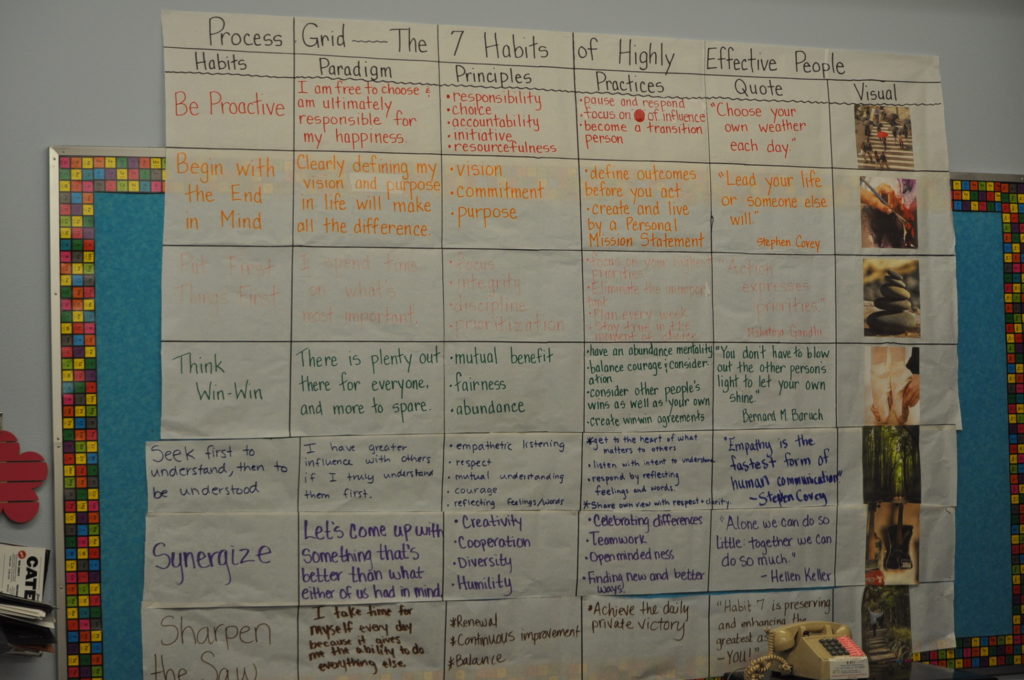 Process Grid — The 7 Habits of Highly Effective People
Habits
Paradigm
Principles
Practices
Quote
Visual
Be Proactive
I am free to choose &
am ultimately
responsible for
my happiness.
• responsibility
• choice
• accountability
• initiative
• resourcefulness
• pause and respond
• focus on of influence
• become a transition
person
"Choose your
own weather
each day"
Begin with
the End
in Mind
Clearly defining my
vision and purpose
in life will make
all the difference.
• vision
• commitment
• purpose
• define outcomes
before you act
• create and live
by a Personal
Mission Statement
"Lead your life
or someone else
will."
Stephen Covey
Put First
Things First
I spend time
on what's
most important.
• Focus
• integrity
• discipline
• prioritization
• Focus on your highest
priorities
• Eliminate the unimpor
tant
• Plan every week
• Stay true in the
moment of
"Action
expresses
priorities."
Gandhi
Think
Win-Win
There is plenty out
there for everyone,
and more to spare.
• mutual benefit
• fairness
• abundance
• have an abundance mentality
• balance courage & consider
ation
• consider other people's
wins as well as your own
• create win win agreements
"You don't have to blow
out the other persons
light to let your own
shine."
Bernard M. Baruch
Seek first to
understand, then to
be understood
I have greater
influence with others
if I truly understand
them first.
• empathetic listening
• respect
• mutual understanding
• courage
• reflecting feelings/words
*get to the heart of what
matters to others
• listen with intent to understand
• respond by reflecting
feelings and words
*Share own view with respect + clarity.
"Empathy is the
fastest form of
human communication"
~Stephen Covey
Synergize
Let's come up with
something that's
better than what
either of us had in mind.
• Creativity
• Cooperation
• Diversity
• Humility
• Celebrating differences
• Teamwork
• Open minded ness
• Finding new and better
ways!
"Alone we can do so
little; together we can
do so much."
- Hellen Keller
Sharpen
the Saw
I take time for
myself every day
because it gives
me the ability to do
everything else.
*Renewal
*Continuous improvement
*Balance
• Achieve the daily
private victory
"Habit 7 is preserving
and enhancing the
greatest a
-You!"
CATE